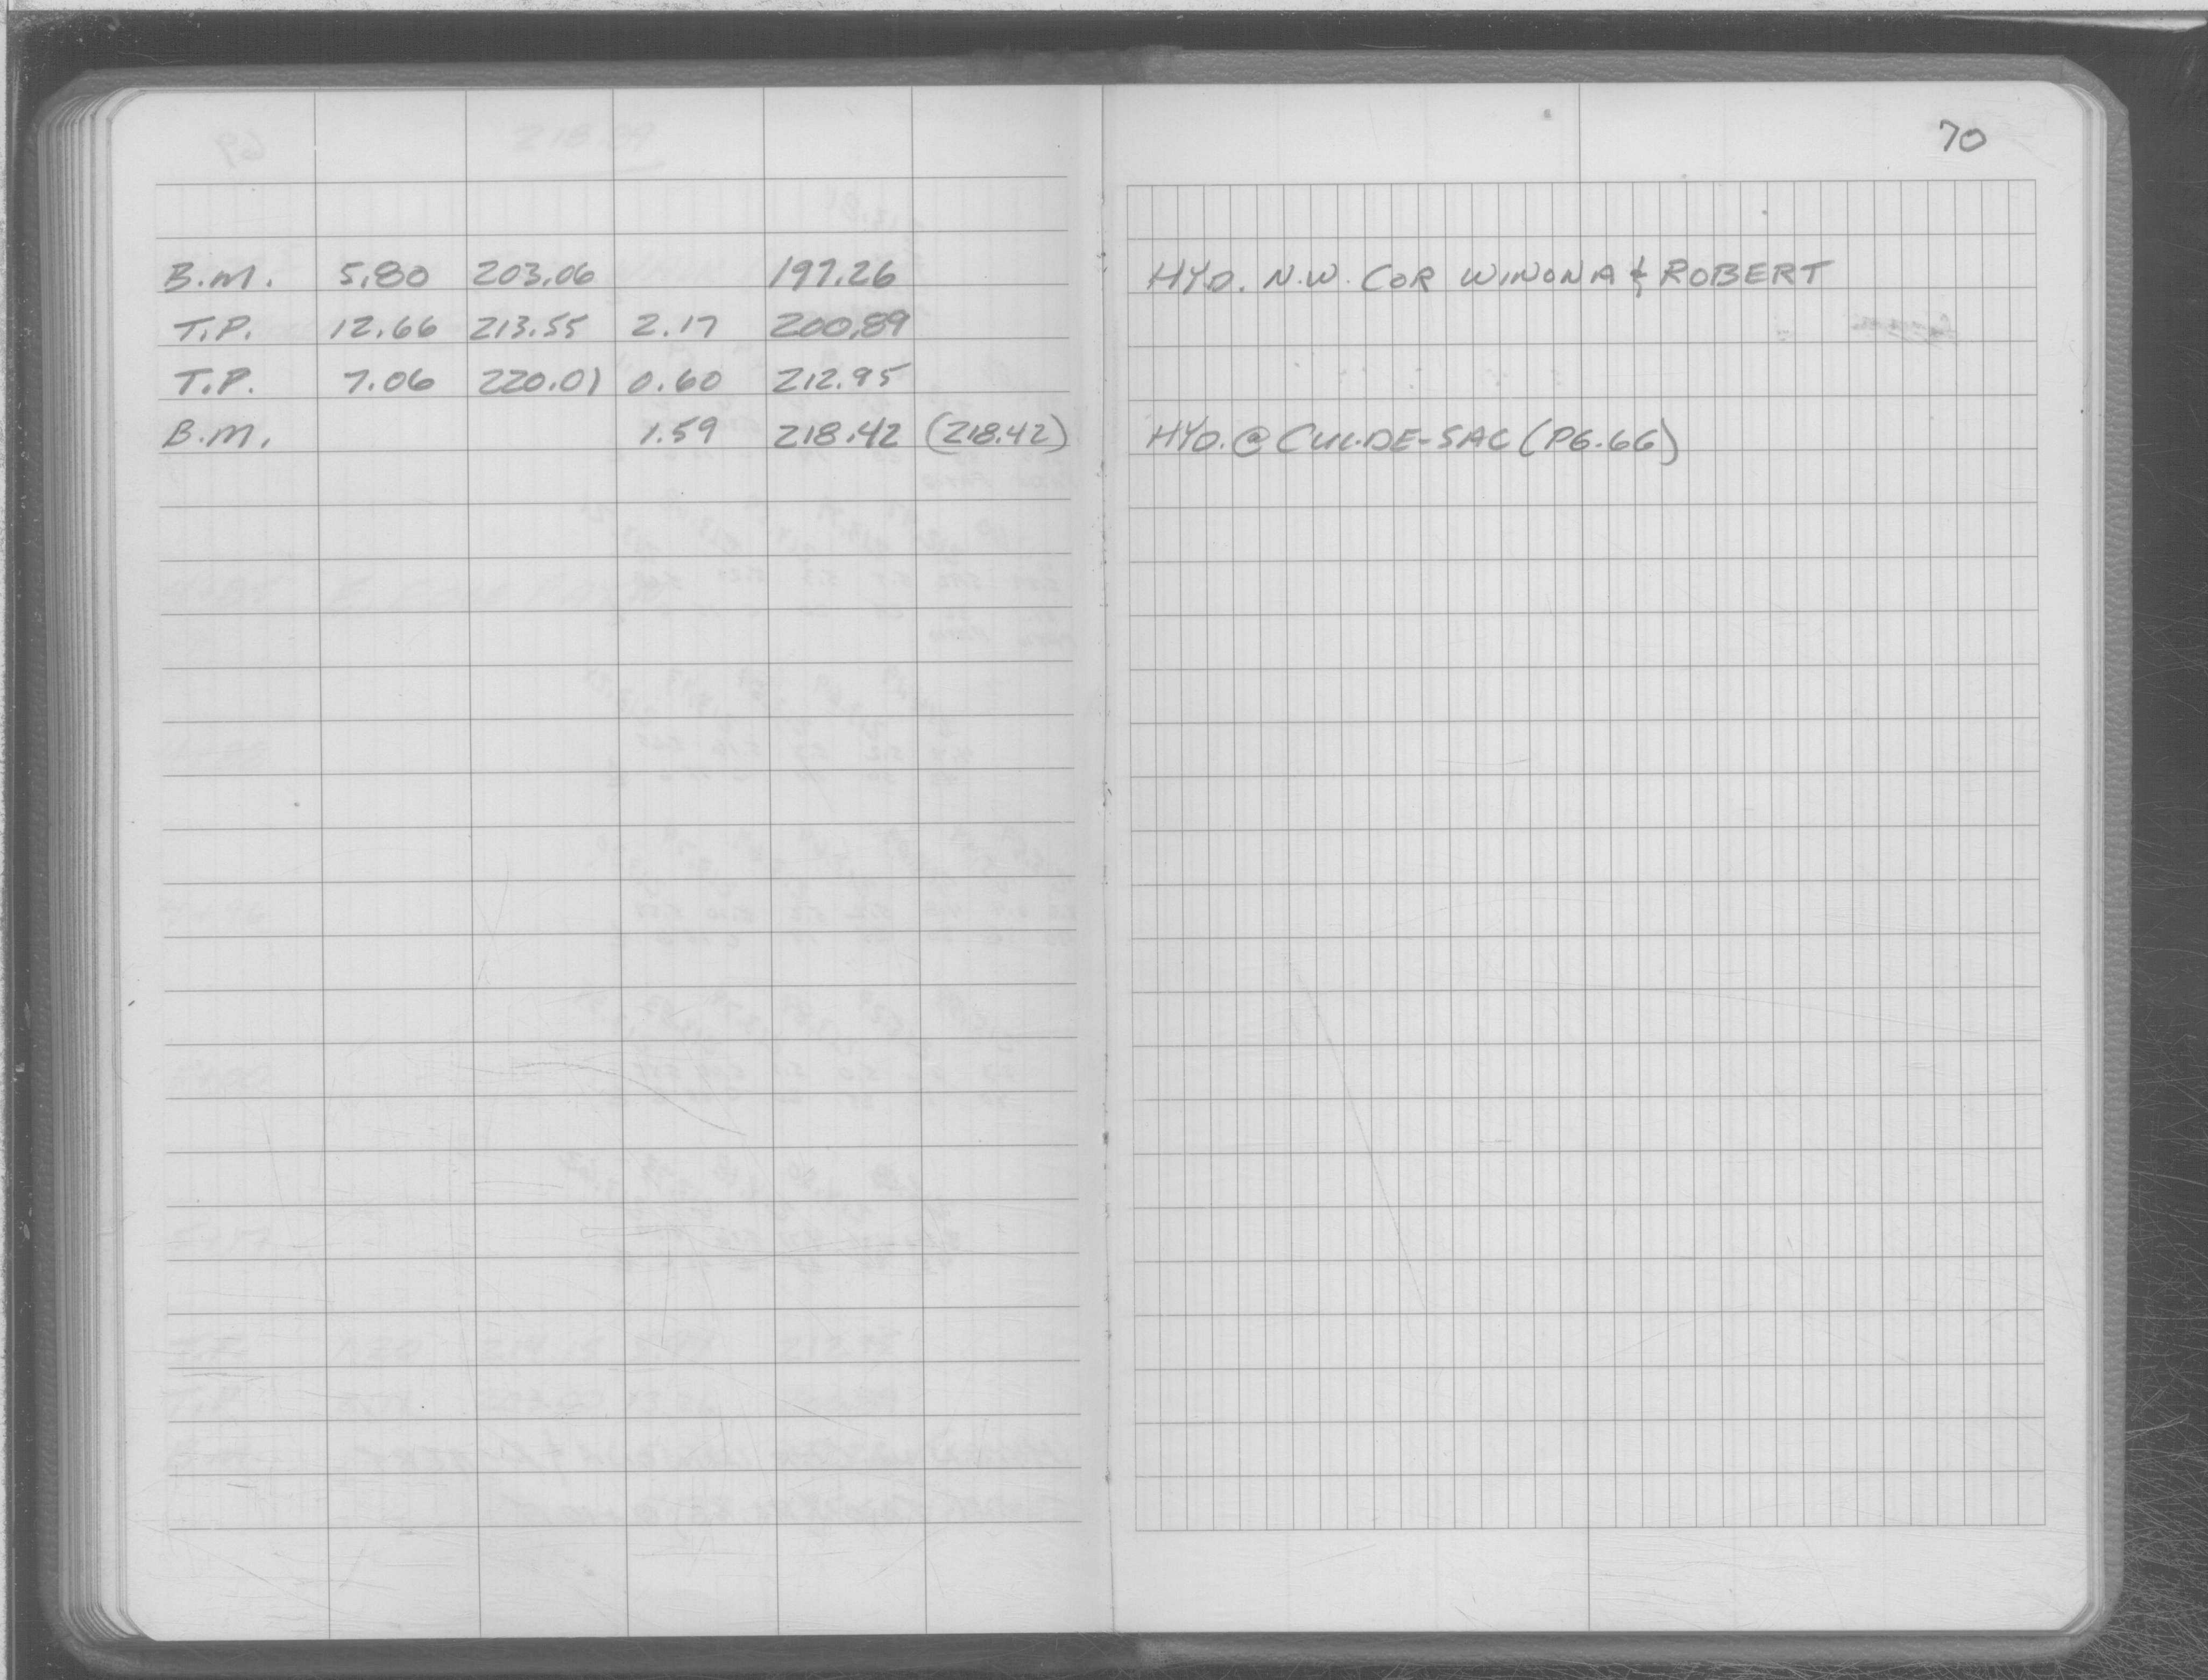 70
B.M. 5.80 203.06 197.26 HYD. N.W. COR WINONA & ROBERT
T.P. 12.66 213.55 2.17 200.89
T.P. 7.06 220.01 0.60 212.95
B.M. 1.59 218.42 (218.42) HYD. @ CUL-DE-SAC (PG. 66)